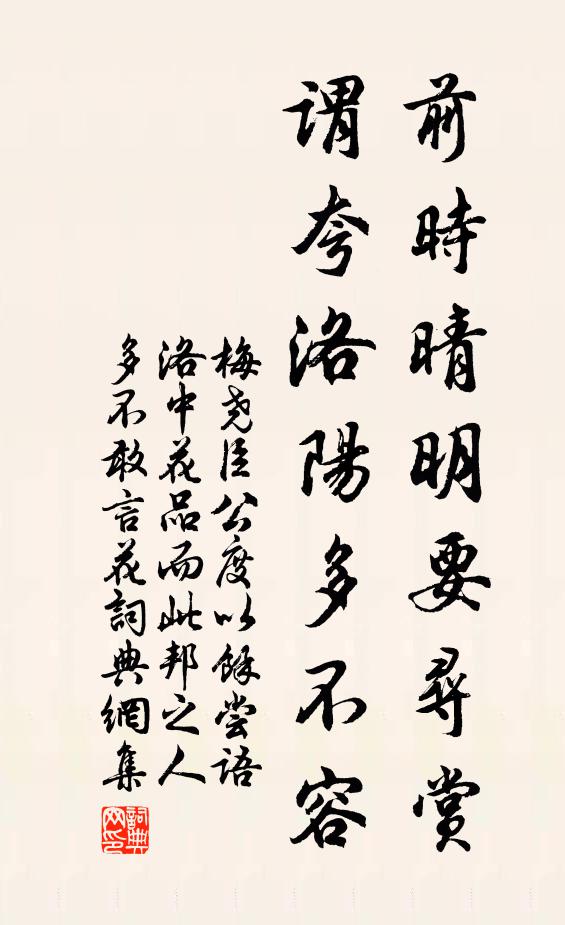 前時晴明要尋賞
謂夸洛陽多不容
梅堯臣公度以餘嘗語
洛中花品而此邦之人
多不敢言花詞典網集
詞典网印